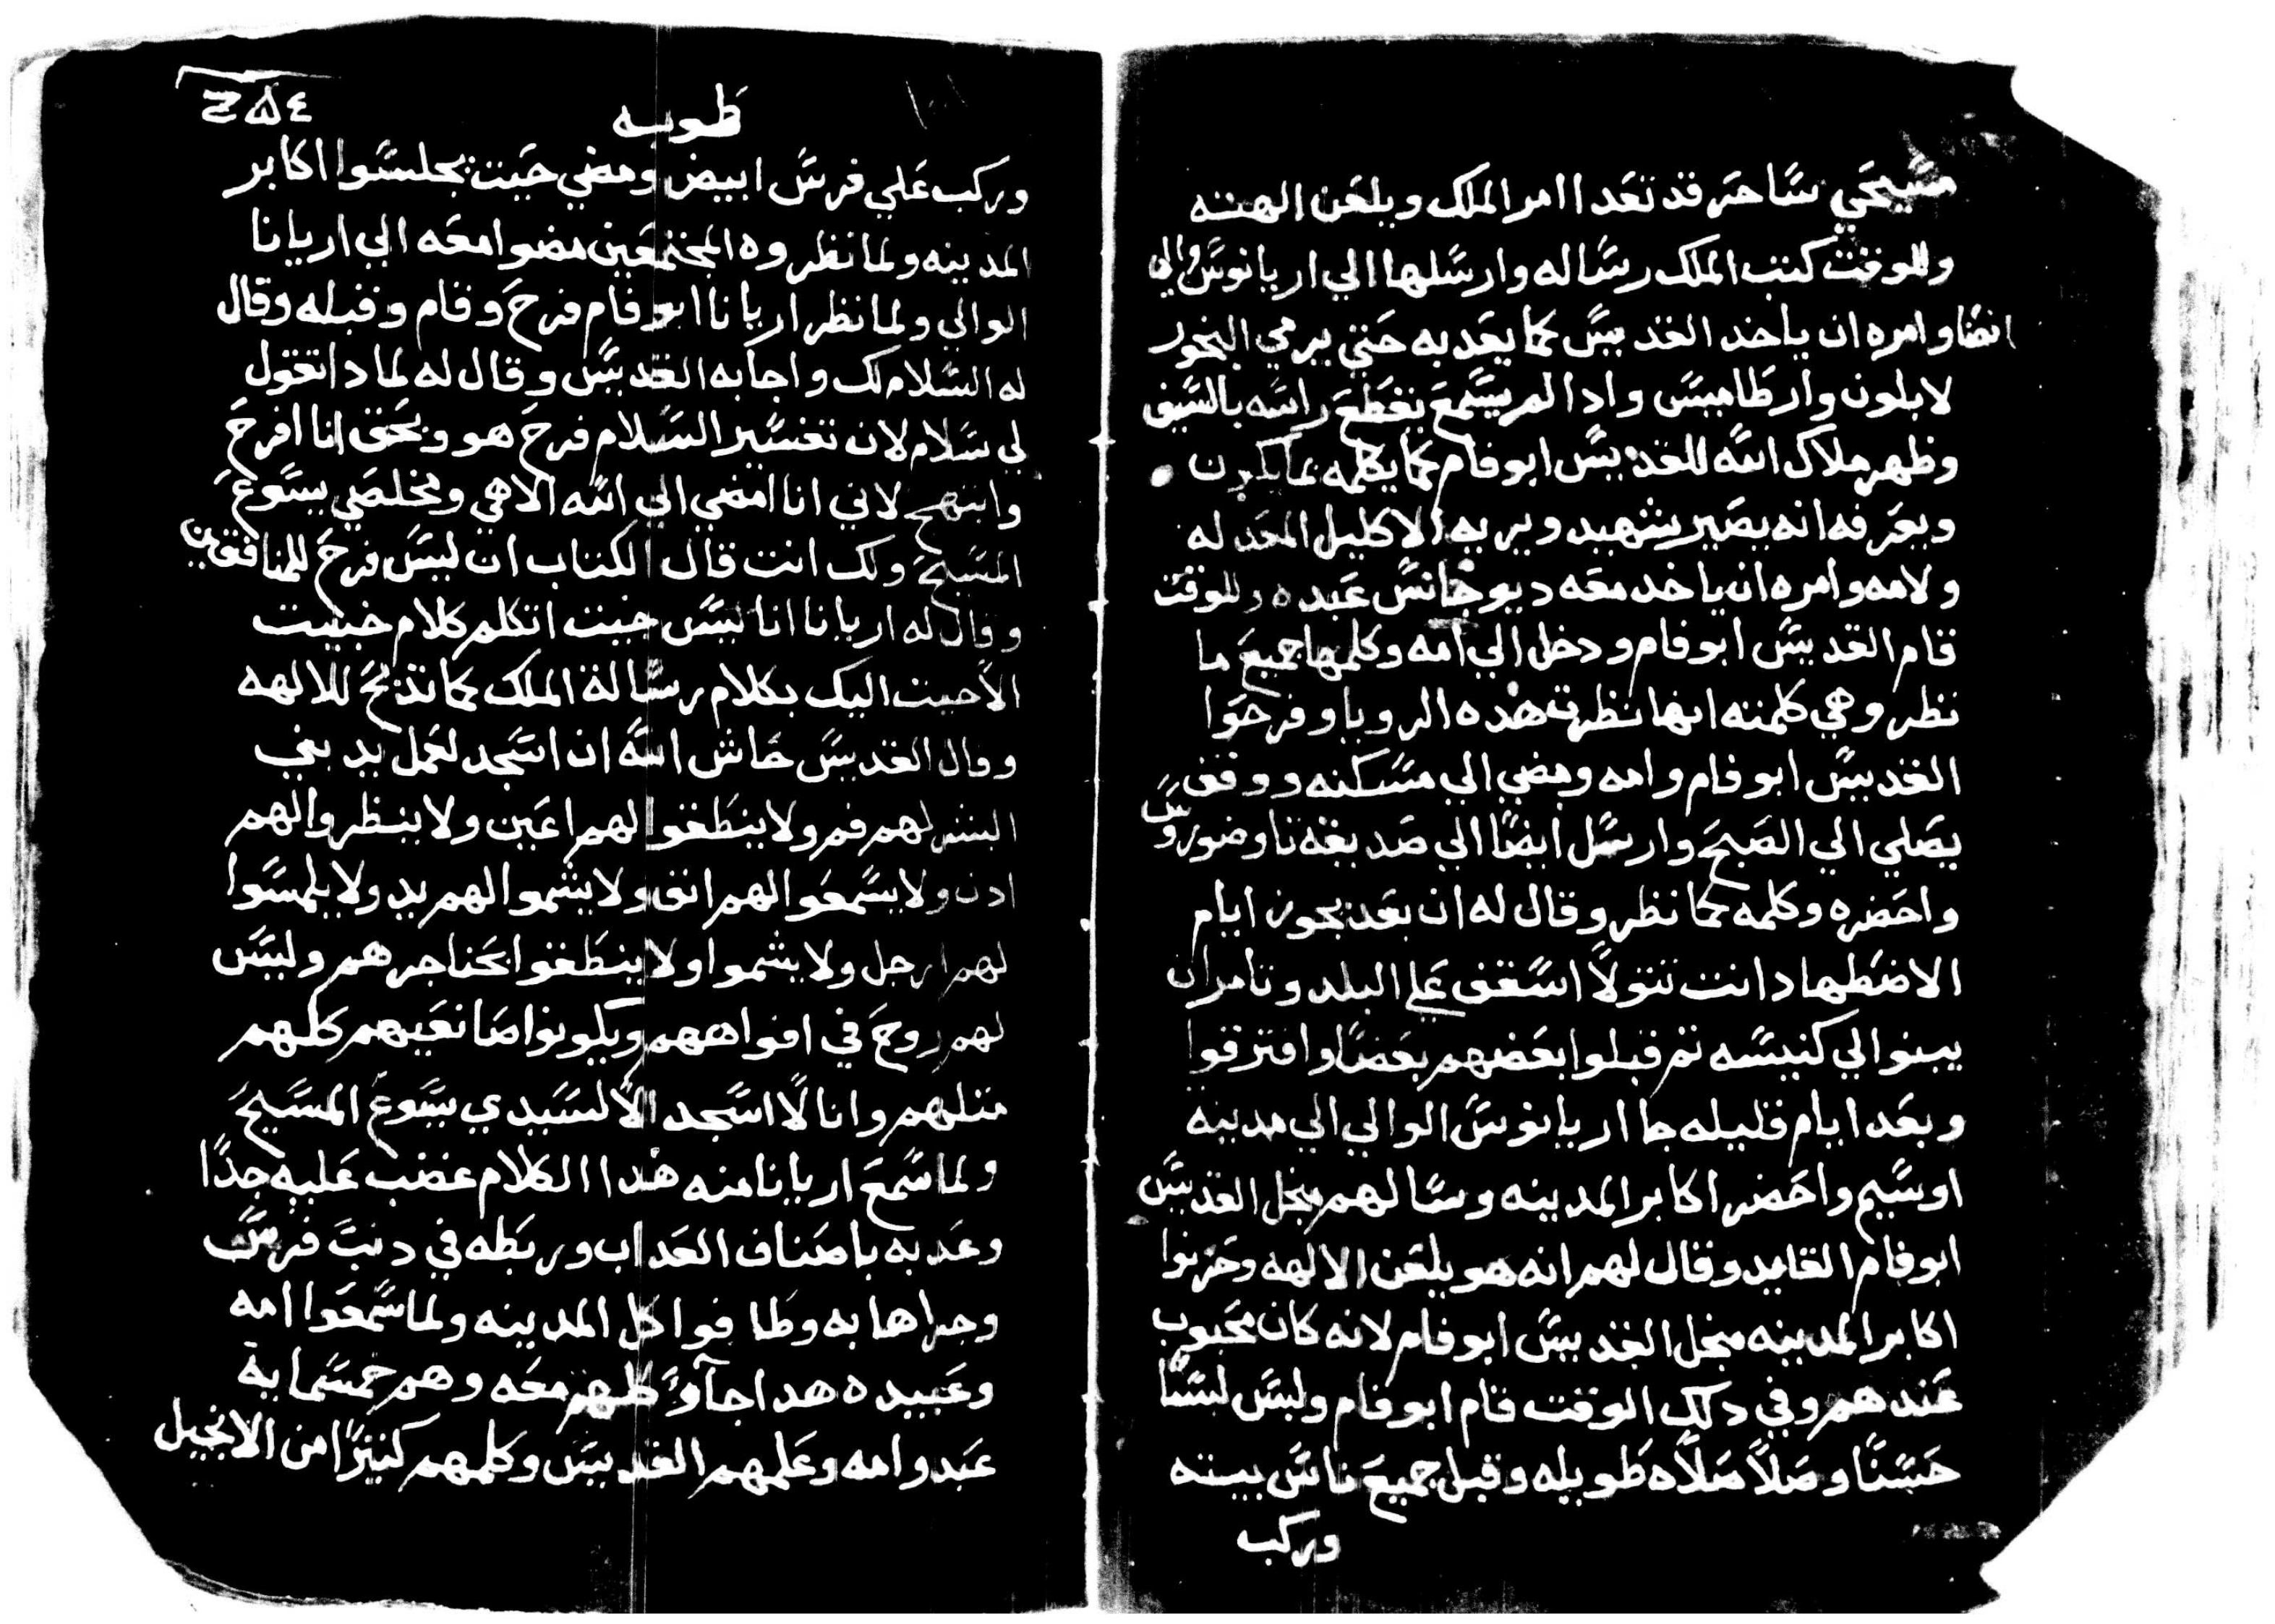 مسيحي ساحر قد تعدا امر الملك ويلعن الهته
وللوقت كتب الملك رساله وارسلها الي اريانوس والي
انصنا وامره ان ياخد القديس كما يعدبه حتي يرمي البخور
لابلون وارطاميس وادا لم يسمع تقطع راسه بالسيف
وظهر ملاك الله للقديس ابوفام كما يكلمه بما يكون
ويعرفه انه يصير شهيد ويريه الاكليل المعد له
ولامه وامره ان ياخد معه ديوجانس عبده وللوقت
قام القديس ابوفام ودخل الي امه وكلمها جميع ما
نظر وهي كلمته انها نظرت هده الرويا وفرحوا
القديس ابوفام وامه ومضي الي مسكنه ووقف
يصلي الي الصبح وارسل ايضا الي صديقه تاوضوروس
واحضره وكلمه كما نظر وقال له ان بعد يجوز ايام
الاضطهاد انت تتولا اسقف علي البلد وتامر ان
يبنوا لي كنيسه تم قبلوا بعضهم بعضا وافترقوا
وبعد ايام قليله جا اريانوس الوالي الي مدينه
اوسيم واحضر اكابر المدينه وسالهم منجل القديس
ابوفام القايد وقال لهم انه هو يلعن الالهه وحزنوا
اكابر المدينه منجل القديس ابوفام لانه كان محبوب
عندهم وفي دلك الوقت قام ابوفام ولبس لبسا
حسنا وصلا صلاه طويله وقبل جميع ناس بيته
وركب
طوبه
وركب علي فرس ابيض ومضي حيت يجلسوا اكابر
المدينه ولما نظروه المجتمعين مضوا معه الي اريانا
الوالي ولما نظر اريانا ابو فام فرح وقام وقبله وقال
له السلام لك واجابه القديس وقال له لمادا تقول
لي سلام لان تفسير السلام فرح هو وبحق انا افرح
وابتهج لاني انا امضي الي الله الاهي ومخلصي يسوع
المسيح ولك انت قال الكتاب ان ليس فرح للمنافقين
وقال له اريانا انا ليس جيت اتكلم كلام خبيت
الا جيت اليك بكلام رسالة الملك كما تدبح للالهه
وقال القديس حاش الله ان اسجد لعمل يد بني
البشر لهم فم ولا ينطقوا لهم اعين ولا ينظروا لهم
ادن ولا يسمعوا لهم انف ولا يشموا لهم يد ولا يلمسوا
لهم ارجل ولا يشموا ولا ينطقوا بحناجرهم وليس
لهم روح في افواههم ويكونوا صانعيهم كلهم
متلهم وانا لا اسجد الا لسيدي يسوع المسيح
ولما سمع اريانا منه هدا الكلام غضب عليه جدا
وعدبه باصناف العداب وربطه في دنب فرس
وجراها به وطافوا كل المدينه ولما سمعوا امه
وعبيده هدا جآو كلهم معه وهم خمسماية
عبد وامه وعلمهم القديس وكلمهم كتيرا من الانجيل